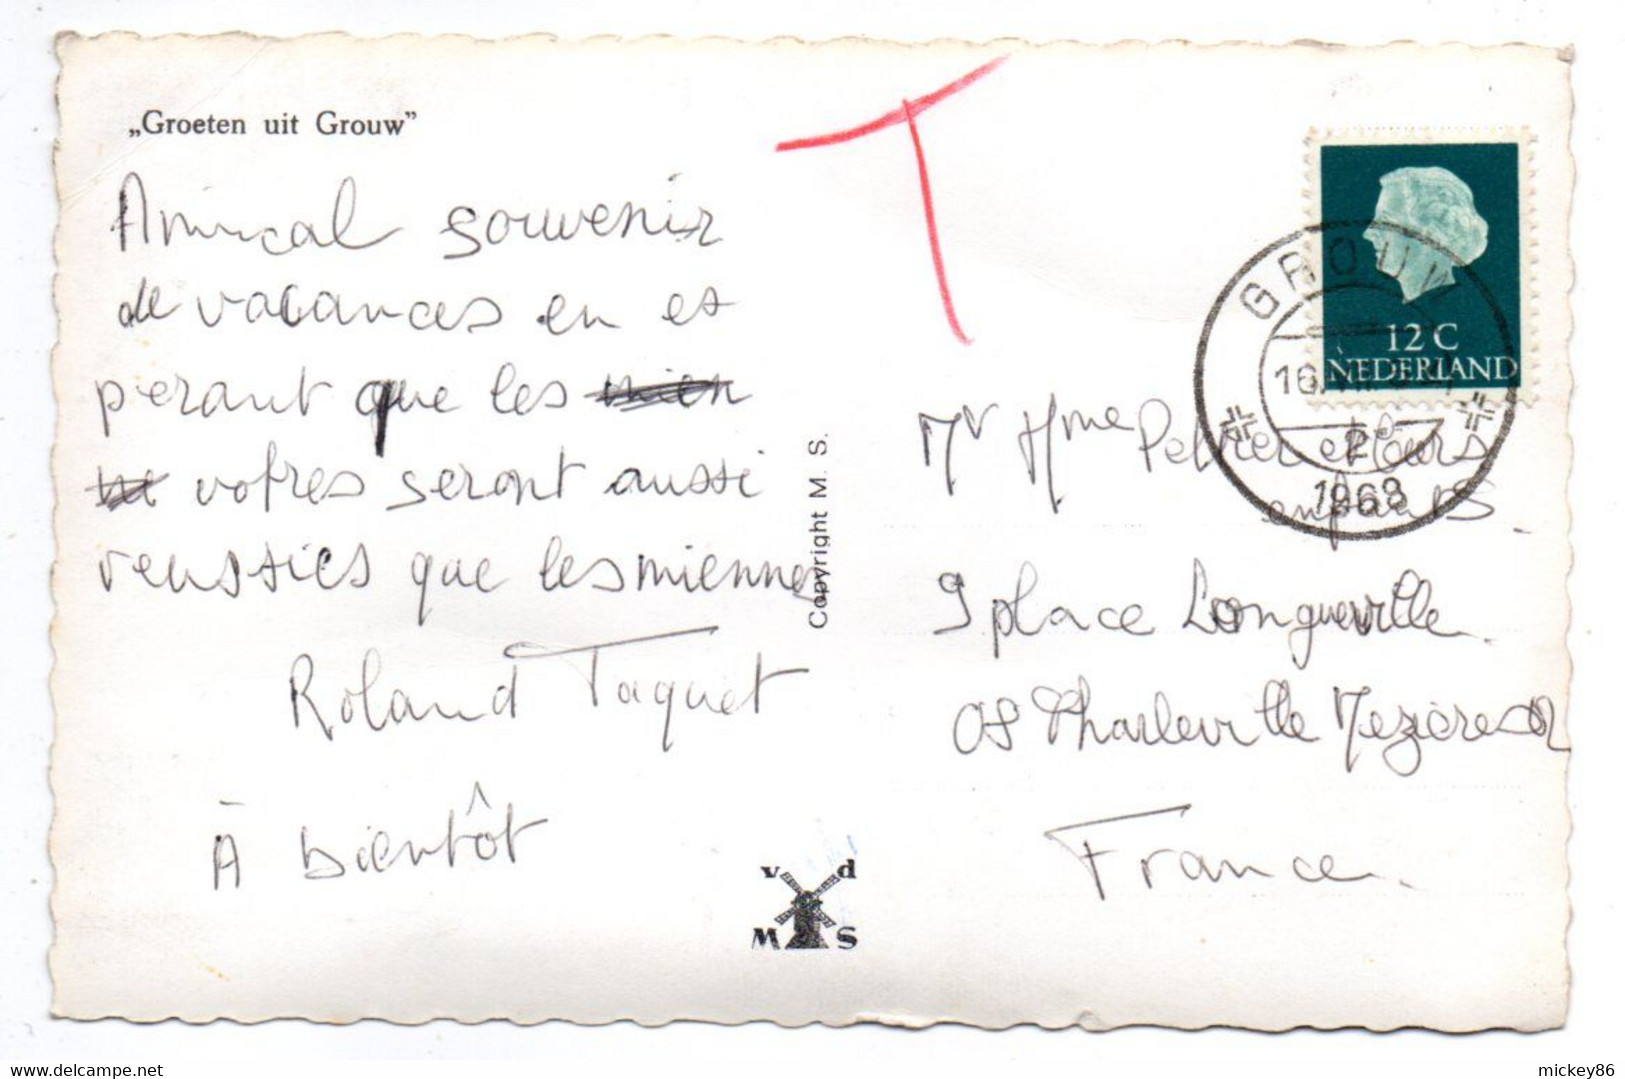 „Groeten uit Grouw”
Amical souvenir
de vacances en es
perant que les
votres seront aussi
reussies que les miennes
Roland Taquet
À bientôt
Copyright M. S.
v d
M S
12 C
NEDERLAND
GROUW
16
1968
Mr Mme et leurs
enfants.
9 place Longueville
08 Charleville Mezières
France.
mickey86